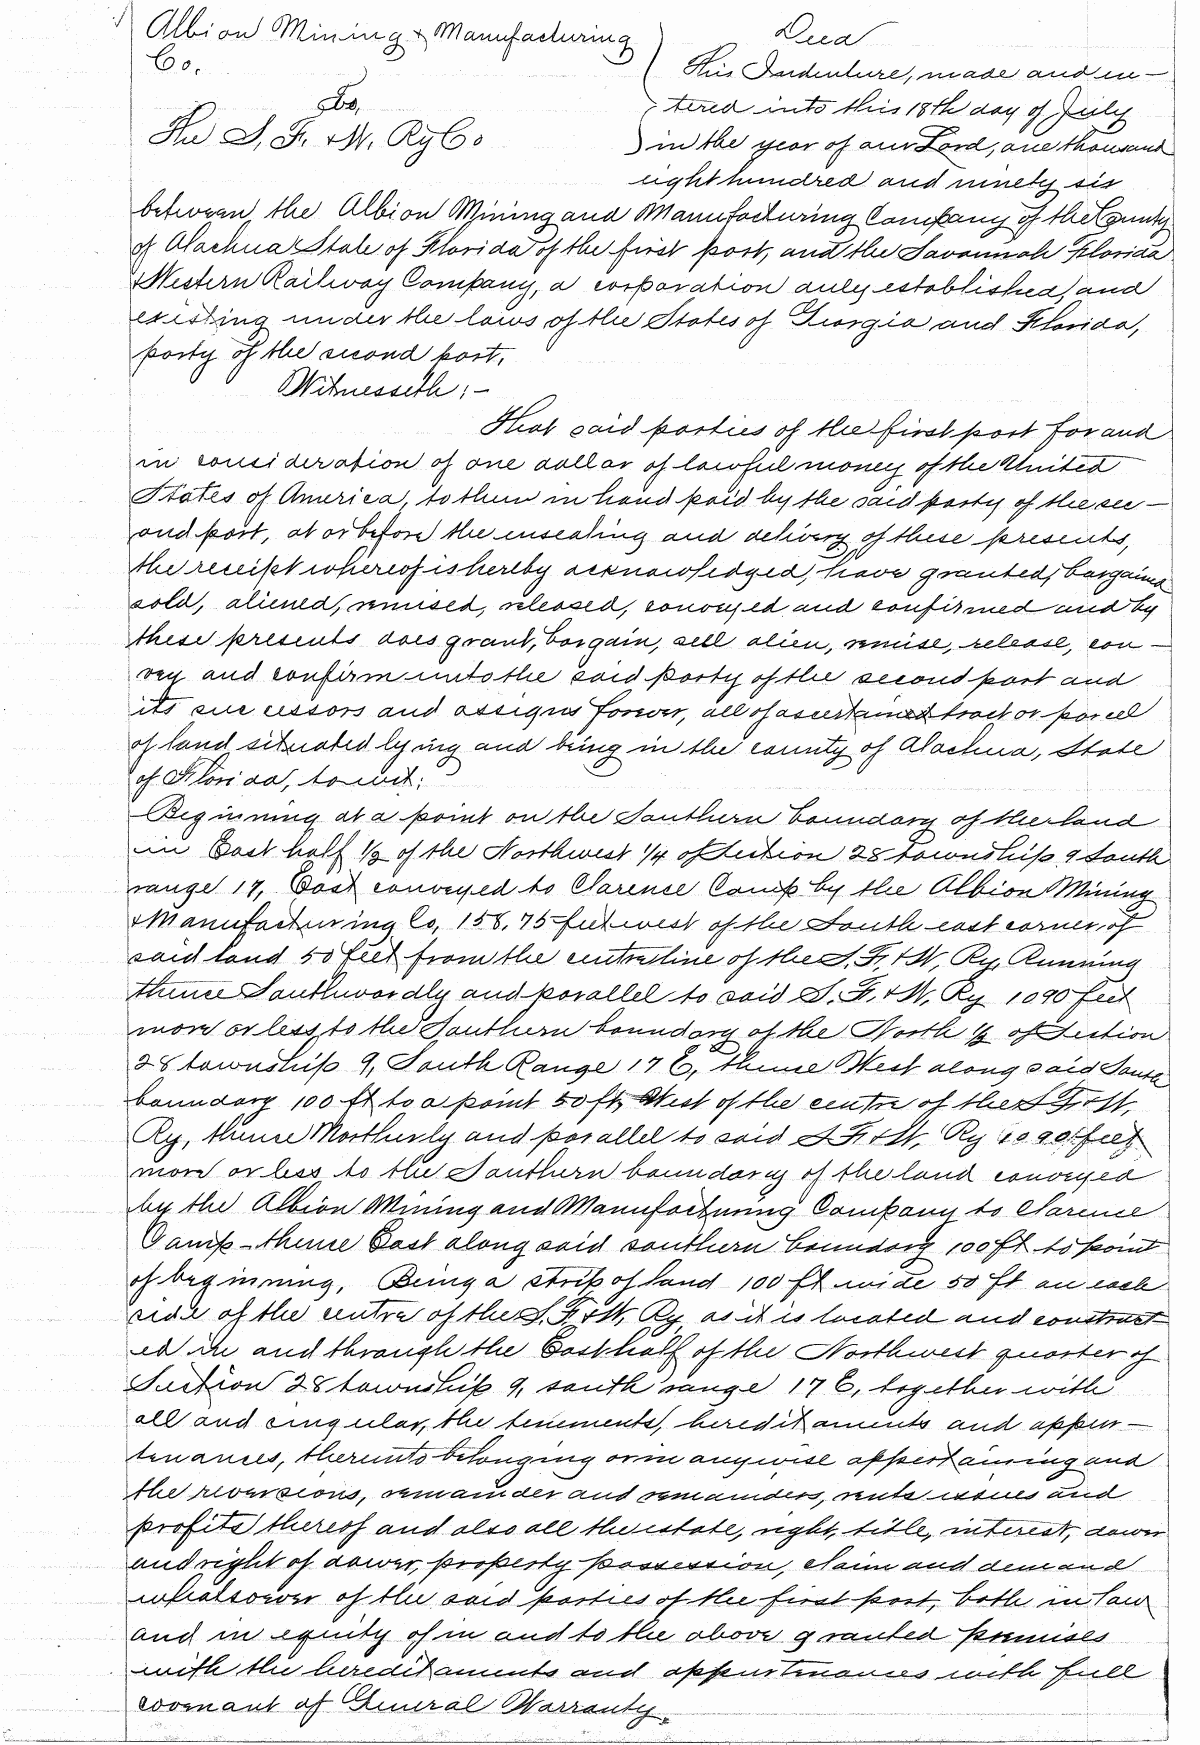 Albion Mining & Manufacturing
Co.
To,
The S, F, & W, Ry Co
Deed
This Indenture, made and en-
tered into this 18th day of July
in the year of our Lord, one thousand
eight hundred and ninety six
between, the Albion Mining and Manufacturing Company of the County
of Alachua State of Florida of the first part, and the Savannah Florida
& Western Railway Company, a corporation duly established, and
existing under the laws of the States of Georgia and Florida,
party of the second part,
Witnesseth:-
That said parties of the first part for and
in consideration of one dollar of lawful money of the United
States of America, to them in hand paid by the said party of the sec-
ond part, at or before the ensealing and delivery of these presents,
the receipt whereof is hereby acknowledged, have granted, bargained
sold, aliened, remised, released, conveyed and confirmed and by
these presents does grant, bargain, sell alien, remise, release, con-
vey and confirm unto the said party of the second part and
its successors and assigns forever, all of ascertained tract or parcel
of land situated lying and being in the county of Alachua, State
of Florida, to wit:
Beginning at a point on the Southern boundary of the land
in East half 1/2 of the Northwest 1/4 of Section 28 township 9 South
range 17, East conveyed to Clarense Camp by the Albion Mining
& Manufacturing Co, 158.75 feet west of the South east corner, of
said land 50 feet from the centre line of the S. F. & W, Ry, Running
thence Southwardly and parallel to said S. F. & W, Ry 1090 feet
more or less, to the Southern boundary of the North 1/2 of Section
28 township 9, South Range 17 E, thence West along said South
boundary 100 ft to a point 50 ft, West of the centre of the S F & W,
Ry, thence Northerly and parallel to said S F & W, Ry 1090 feet
more or less to the Southern boundary of the land conveyed
by the Albion Mining and Manufacturing Company to Clarence
Camp - thence East along said southern boundary 100 ft to point
of beginning, Being a strip of land 100 ft wide 50 ft on each
side of the centre of the S. F. & W, Ry, as it is located and construct
ed in and through the East half of the Northwest quarter of
Section 28 township 9, south range 17 E, together with
all and singular, the tenements, hereditaments and appur-
tenances, thereunto belonging or in anywise appertaining and
the reversions, remainder and remainders, rents issues and
profits thereof and also all the estate, right, title, interest, dower
and right of dower, property possession, claim and demand
whatsoever of the said parties of the first part, both in law
and in equity of in and to the above granted premises
with the hereditaments and appurtenances with full
covenant of General Warranty.